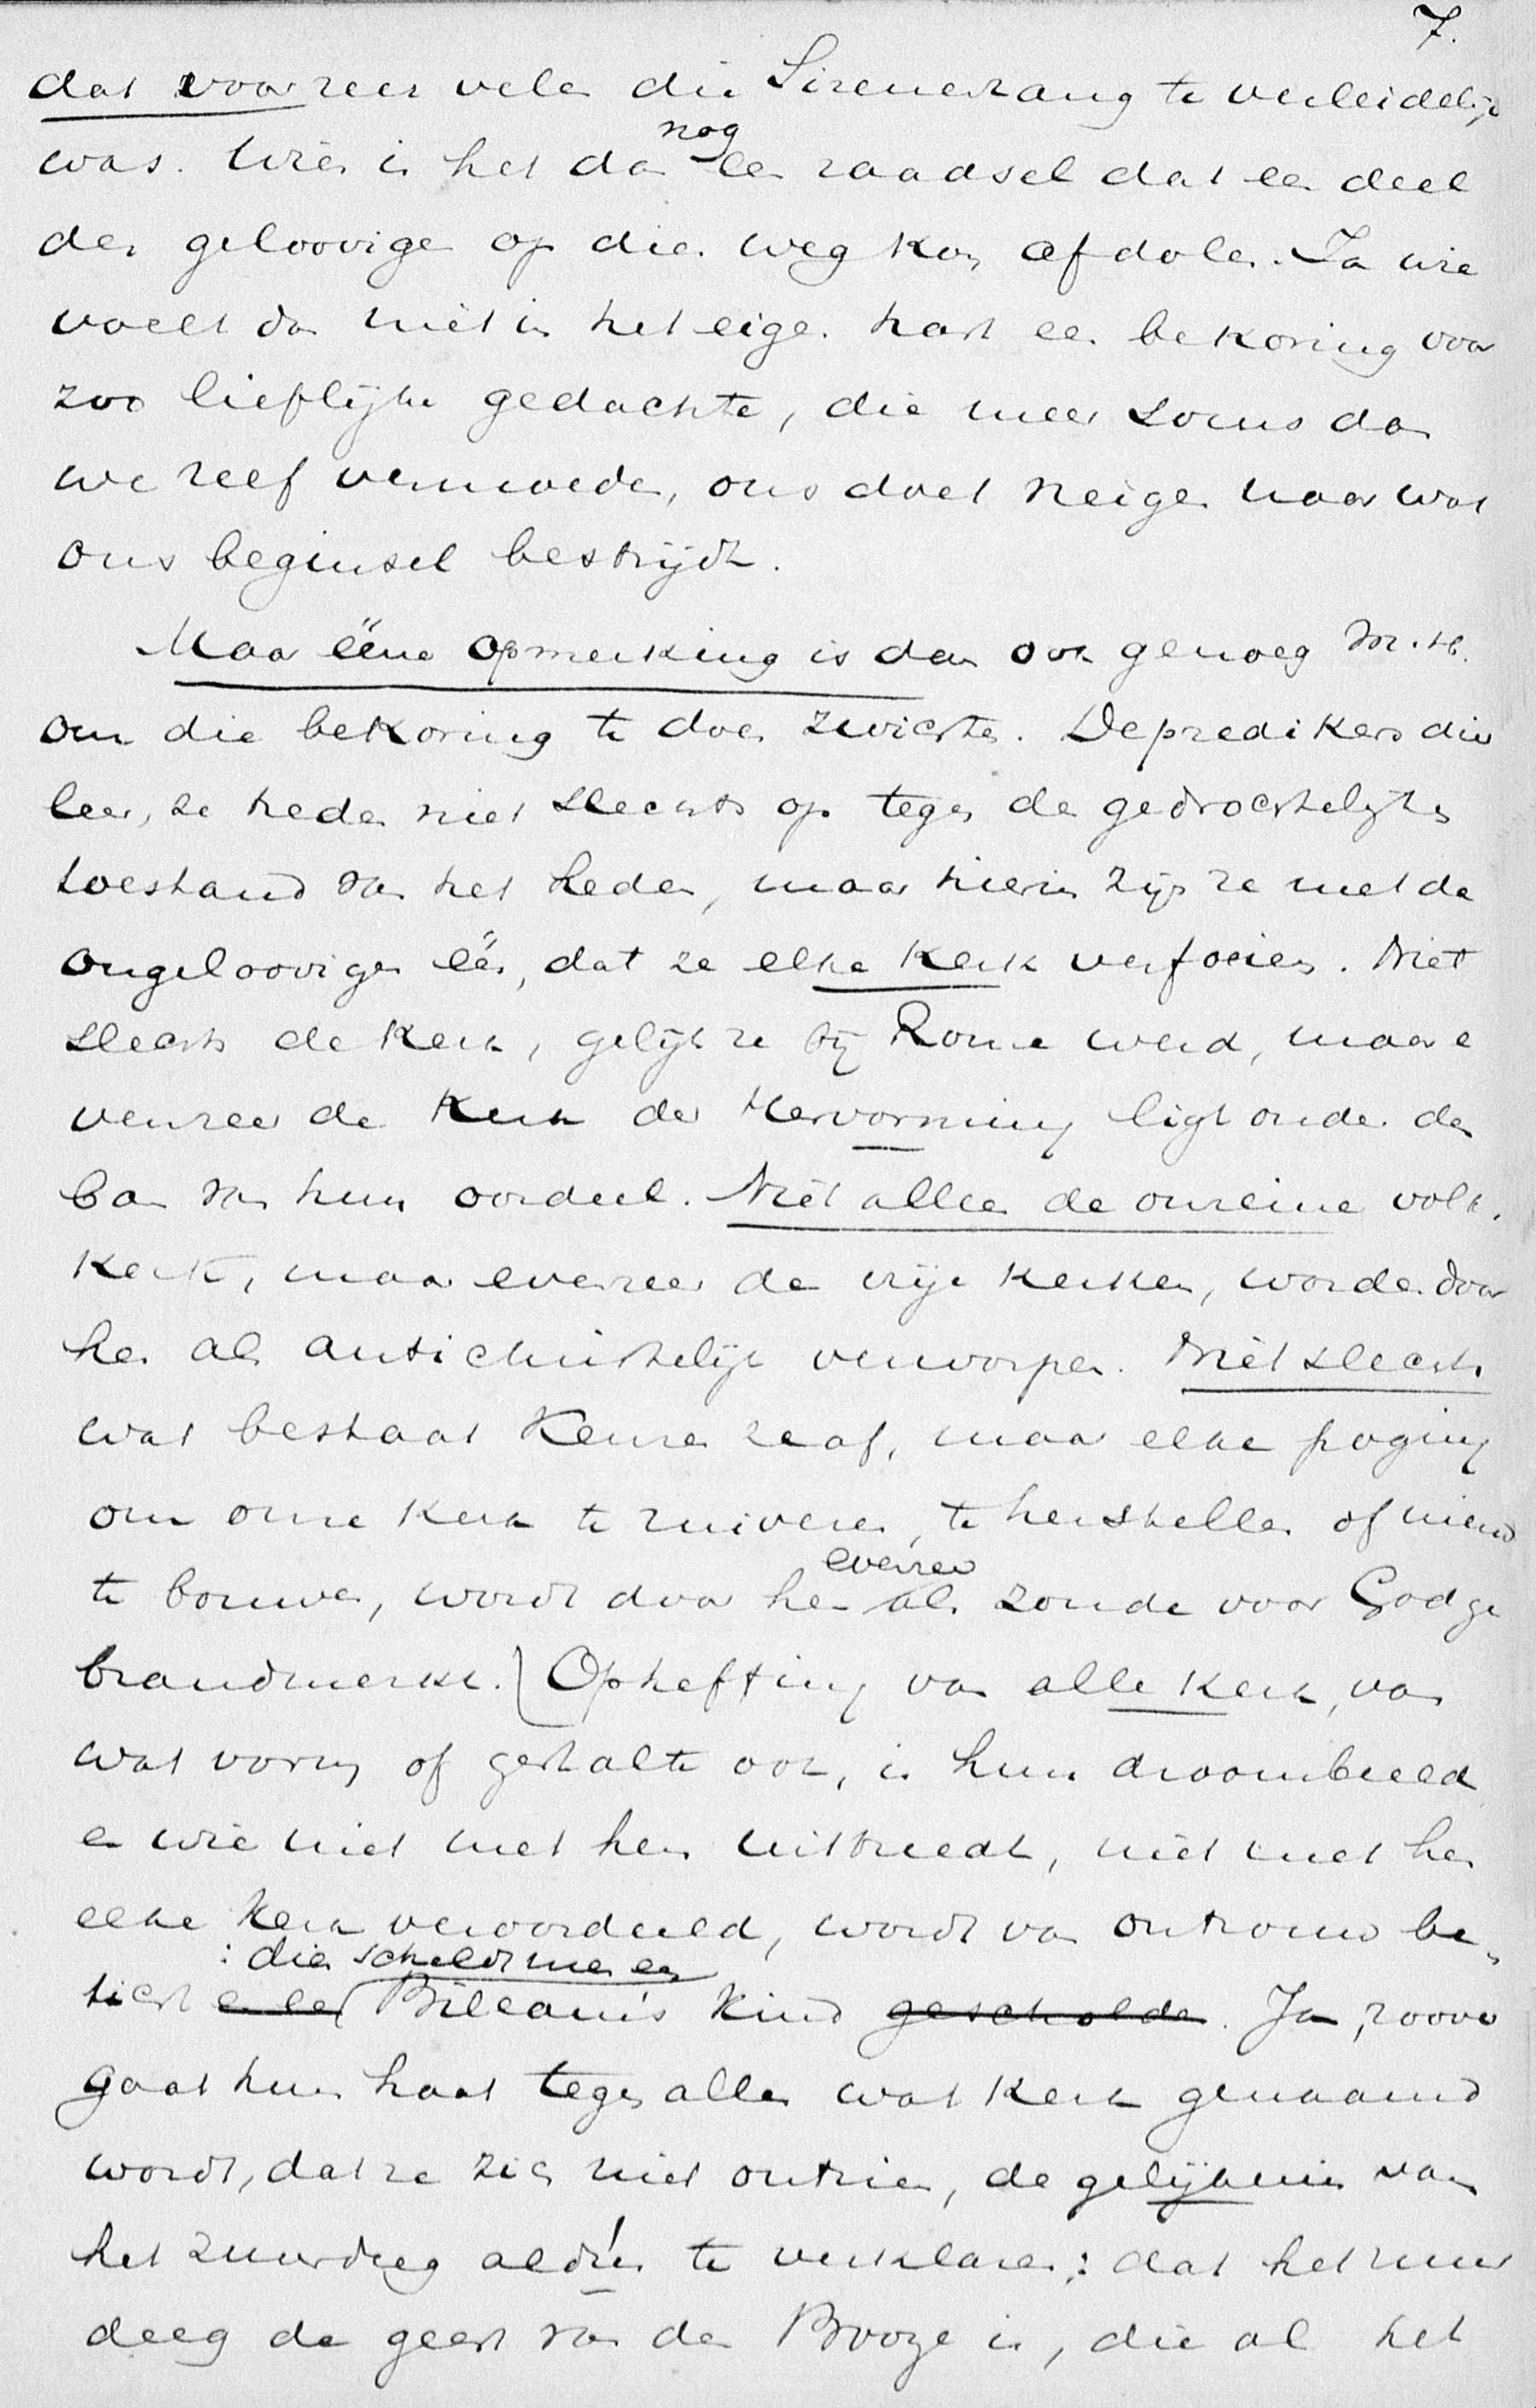 7.
dat voor zeer velen die Sirenenzang te verleidelijk
was. Wien is het dan nog een raadsel dat een deel
der geloovigen op dien weg kon afdolen. Ja wie
voelt dan niet in het eigen hart een bekoring voor
zoo lieflijke gedachte, die meer soms dan
we zelf vermoeden, ons doet neigen naar wat
ons beginsel bestrijdt.
Maar ééne opmerking is dan ook genoeg M.H.
om die bekoring te doen zwichten. De predikers dier
leer, ze treden niet slechts op tegen den gedrochtelijken
toestand van het heden, maar hierin zijn ze met de
ongeloovigen één, dat ze elke kerk verfoeien. Niet
slechts de kerk, gelijk ze bij Rome werd, maar e
venzeer de kerk der Hervorming ligt onder den
ban van hun oordeel. Niet alleen de onreine volks
kerk, maar evenzeer de vrije kerken, worden door
hen als antichristelijk verworpen. Niet slechts
wat bestaat keuren ze af, maar elke poging
om onze kerk te zuiveren, te herstellen of nieuw
te bouwen, wordt door hen evenzeer als zonde voor God ge
brandmerkt. Opheffing van alle kerk, van
wat vorm of gestalte ook, is hun droombeeld
en wie niet met hen uittreedt, niet met hen
elke kerk veroordeeld, wordt van ontrouw be-
ticht : dien scheldt men een en een Bileam's kind gescholden. Ja, zoover
gaat hun haat tegen alles wat kerk genaamd
wordt, dat ze zich niet ontzien, de gelijkenis van
het zuurdeeg aldús te verklaren: dat het zuur
deeg de geest van den Booze is, die al het